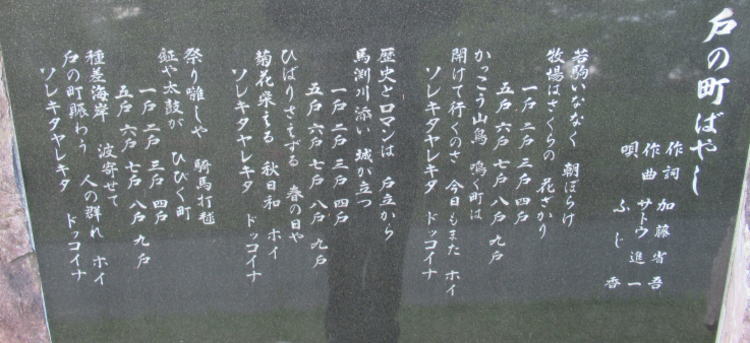 戸の町ばやし
作詞 加藤省吾
作曲 サトウ進一
唄 ふじ香
若駒いななく 朝ぼらけ
牧場はさくらの 花ざかり
一戸 二戸 三戸 四戸
五戸 六戸 七戸 八戸 九戸
かっこう山鳥 鳴く町は
開けて行くのさ 今日もまた ホイ
ソレキタヤレキタ ドッコイナ
歴史とロマンは 戸立から
馬渕川添い 城が立つ
一戸 二戸 三戸 四戸
五戸 六戸 七戸 八戸 九戸
ひばりさえずる 春の日や
菊花栄える 秋日和 ホイ
ソレキタヤレキタ ドッコイナ
祭り囃しや 騎馬打毬
鉦や太鼓が ひびく町
一戸 二戸 三戸 四戸
五戸 六戸 七戸 八戸 九戸
種差海岸 波寄せて
戸の町賑わう 人の群れ ホイ
ソレキタヤレキタ ドッコイナ